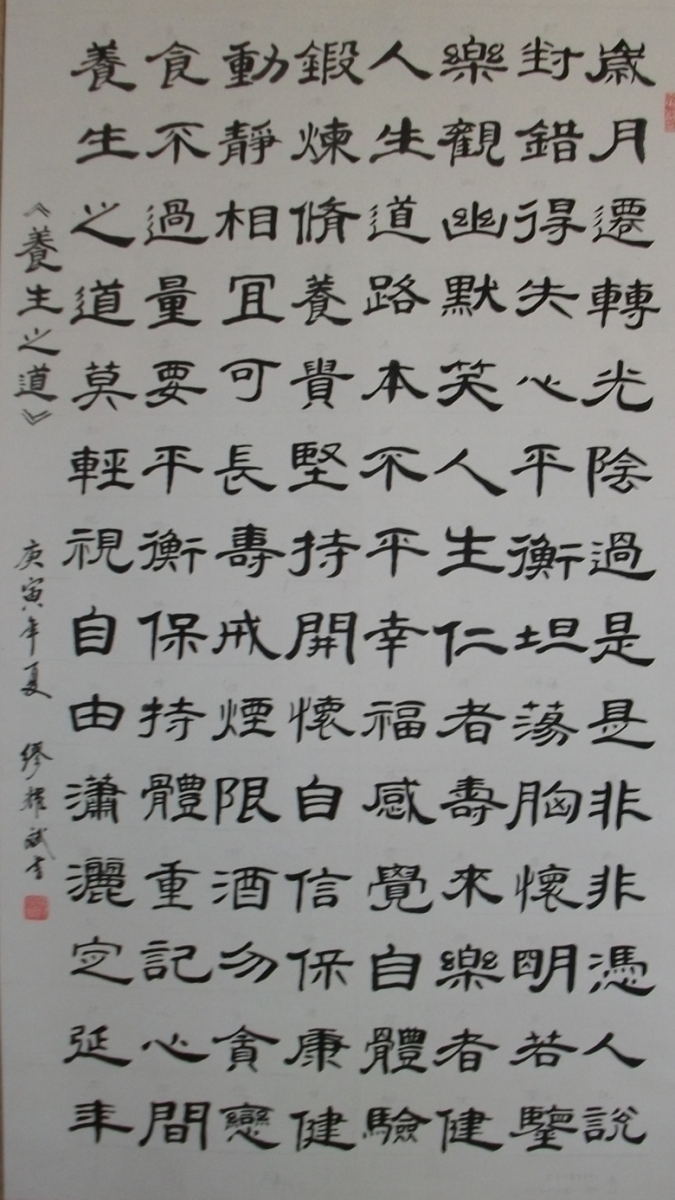 歲月遷轉光陰過是是非非憑人說
對錯得失心平衡坦蕩胸懷明若鑒
樂觀幽默笑人生仁者壽來樂者健
人生道路本不平幸福感覺自體驗
鍛煉脩養貴堅持開懷自信保康健
動靜相宜可長壽戒煙限酒勿貪戀
食不過量要平衡保持體重記心間
養生之道莫輕視自由瀟灑定延年
《養生之道》 庚寅年夏 繆耀斌書